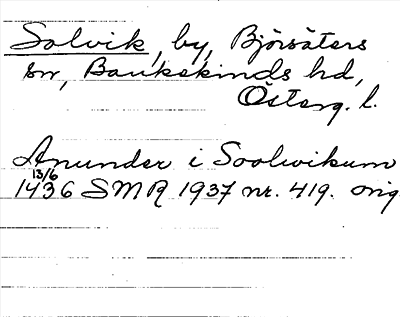 Solvik, by, Björsäters
sn, Bankekinds hd,
Österg. l.
Anunder i Soolwikum
13/6
1436 SMR 1937 nr. 419. orig